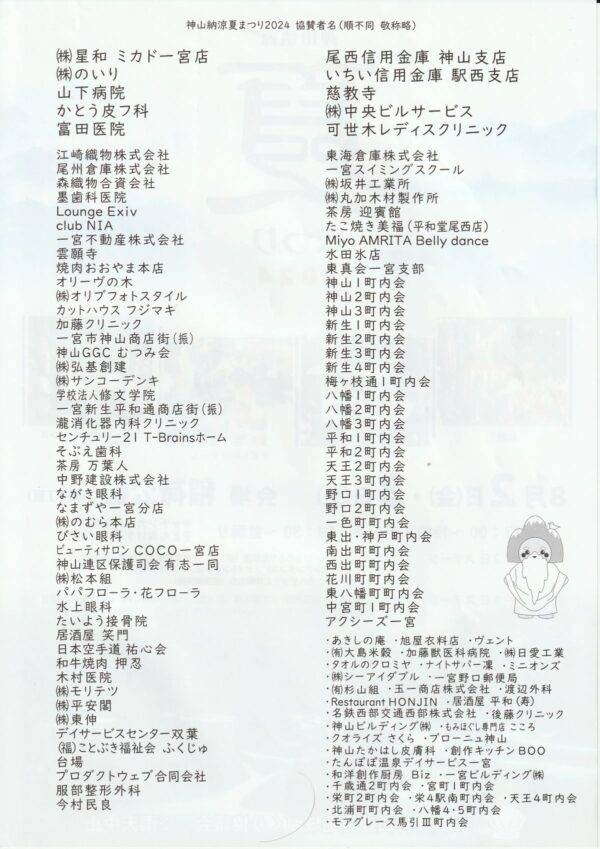 神山納涼夏まつり2024 協賛者名(順不同 敬称略)
㈱星和 ミカドー宮店
㈱のいり
山下病院
かとう皮フ科
富田医院
江崎織物株式会社
尾州倉庫株式会社
森織物合資会社
墨歯科医院
Lounge Exiv
club NIA
一宮不動産株式会社
雲願寺
焼肉おおやま本店
オリーヴの木
㈱オリブフォトスタイル
カットハウス フジマキ
加藤クリニック
一宮市神山商店街(振)
神山GGC むつみ会
㈱弘基創建
㈱サンコーデンキ
学校法人修文学院
一宮新生平和通商店街(振)
瀧消化器内科クリニック
センチュリー21 T-Brainsホーム
そぶえ歯科
茶房 万葉人
中野建設株式会社
ながき眼科
なまずや一宮分店
㈱のむら本店
びさい眼科
ビューティサロン COCO一宮店
神山連区保護司会 有志一同
㈱松本組
パパフローラ・花フローラ
水上眼科
たいよう接骨院
居酒屋 笑門
日本空手道 祐心会
和牛焼肉 押忍
木村医院
㈱モリテツ
㈱平安閣
㈱東伸
デイサービスセンター双葉
(福)ことぶき福祉会 ふくじゅ
台場
プロダクトウェブ合同会社
服部整形外科
今村民良
尾西信用金庫 神山支店
いちい信用金庫 駅西支店
慈教寺
㈱中央ビルサービス
可世木レディスクリニック
東海倉庫株式会社
一宮スイミングスクール
㈱坂井工業所
㈱丸加木材製作所
茶房 迎賓館
たこ焼き美福(平和堂尾西店)
Miyo AMRITA Belly dance
水田氷店
東真会一宮支部
神山1町内会
神山2町内会
神山3町内会
新生1町内会
新生2町内会
新生3町内会
新生4町内会
梅ヶ枝通1町内会
八幡1町内会
八幡2町内会
八幡3町内会
平和1町内会
平和2町内会
天王2町内会
天王3町内会
野口1町内会
野口2町内会
一色町町内会
東出・神戸町内会
南出町町内会
西出町町内会
花川町町内会
東八幡町町内会
中宮町1町内会
アクシーズ一宮
・あきしの庵 ・旭屋衣料店 ・ヴェント
・㈲大島米穀 ・加藤獣医科病院 ・㈱日愛工業
・タオルのクロミヤ ・ナイトサパー凜 ・ミニオンズ
・㈱シーアイダブル ・一宮野口郵便局
・㈲杉山組 ・玉一商店株式会社 ・渡辺外科
・Restaurant HONJIN ・居酒屋 平和(寿)
・名鉄西部交通西部株式会社 ・後藤クリニック
・神山ビルディング㈱ ・もみほぐし専門店 こころ
・クオライズ さくら ・ブローニュ神山
・神山たかはし皮膚科 ・創作キッチンBOO
・たんぽぽ温泉デイサービス一宮
・和洋創作厨房 Biz ・一宮ビルディング㈱
・千歳通2町内会 ・宮町1町内会
・栄町2町内会 ・栄4駅南町内会 ・天王4町内会
・北浦町町内会 ・八幡4・5町内会
・モアグレース馬引Ⅲ町内会